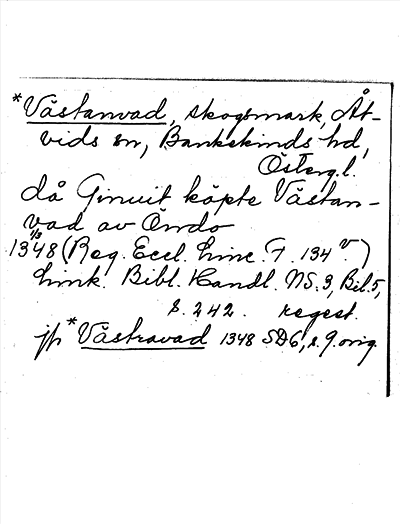 *Västanvad, skogsmark, Åt-
vids sn, Bankekinds hd,
Östergl.
då Ginuit köpte Västan-
vad av Öndo
1/3
1348 (Reg. Eccl. Linc. F. 134 v.)
Link. Bibl. Handl. NS. 3, Bil. 5,
s. 242. regest.
jfr *Västravad 1348 SD6, s. 9. orig.